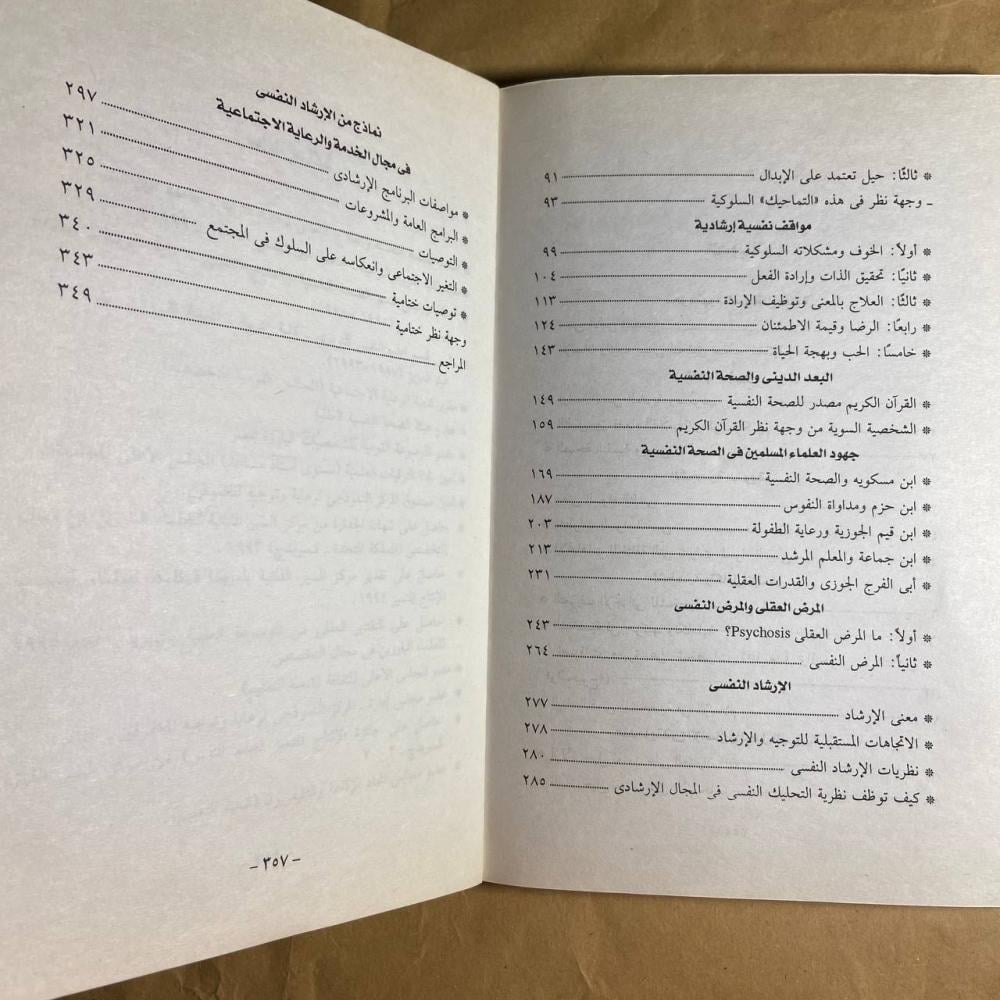 * ثالثًا: حيل تعتمد على الإبدال ٩١
ـ وجهة نظر فى هذه «التماحيك» السلوكية ٩٣
مواقف نفسية إرشادية
* أولاً: الخوف ومشكلاته السلوكية ٩٩
* ثانيًا: تحقيق الذات وإرادة الفعل ١٠٤
* ثالثًا: العلاج بالمعنى وتوظيف الإرادة ١١٣
* رابعًا: الرضا وقيمة الاطمئنان ١٢٤
* خامسًا: الحب وبهجة الحياة ١٤٣
البعد الدينى والصحة النفسية
* القرآن الكريم مصدر للصحة النفسية ١٤٩
* الشخصية السوية من وجهة نظر القرآن الكريم ١٥٩
جهود العلماء المسلمين فى الصحة النفسية
* ابن مسكويه والصحة النفسية ١٦٩
* ابن حزم ومداواة النفوس ١٨٧
* ابن قيم الجوزية ورعاية الطفولة ٢٠٣
* ابن جماعة والمعلم المرشد ٢١٣
* أبى الفرج الجوزى والقدرات العقلية ٢٣١
المرض العقلى والمرض النفسى
* أولاً: ما المرض العقلى Psychosis؟ ٢٤٣
* ثانياً: المرض النفسى ٢٦٤
الإرشاد النفسى
* معنى الإرشاد ٢٧٧
* الاتجاهات المستقبلية للتوجيه والإرشاد ٢٧٨
* نظريات الإرشاد النفسى ٢٨٠
* كيف توظف نظرية التحليك النفسى فى المجال الإرشادى ٢٨٥
نماذج من الإرشاد النفسى
فى مجال الخدمة والرعاية الاجتماعية
* مواصفات البرنامج الإرشادى ٢٩٧
* البرامج العامة والمشروعات ٣٢١
* التوصيات ٣٢٥
* التغير الاجتماعى وانعكاسه على السلوك فى المجتمع ٣٢٩
* توصيات ختامية ٣٤٠
وجهة نظر ختامية ٣٤٣
المراجع ٣٤٩
- ٣٥٧ -